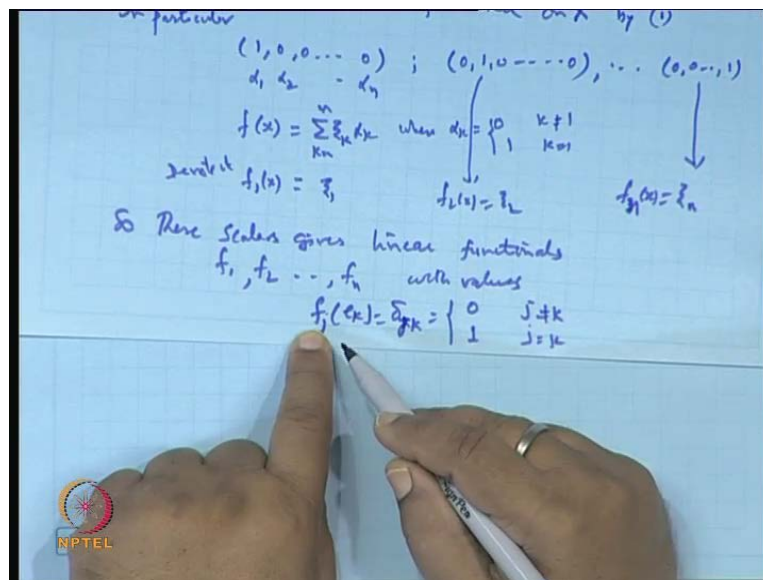 In particular ; on X by (1)
(1, 0, 0 ... 0) ; (0, 1, 0 ---- 0), ... (0, 0 .., 1)
α₁ α₂ - αₙ
f(x) = Σ ξₖ αₖ where αₖ = { 0 k ≠ 1
1 k=1
Denote it f₁(x) = ξ₁ f₂(x) = ξ₂ fₙ(x) = ξₙ
So These Scalars gives linear functionals
f₁, f₂ ..., fₙ with values
fⱼ(eₖ) = δⱼₖ = { 0 j ≠ k
1 j = k
NPTEL